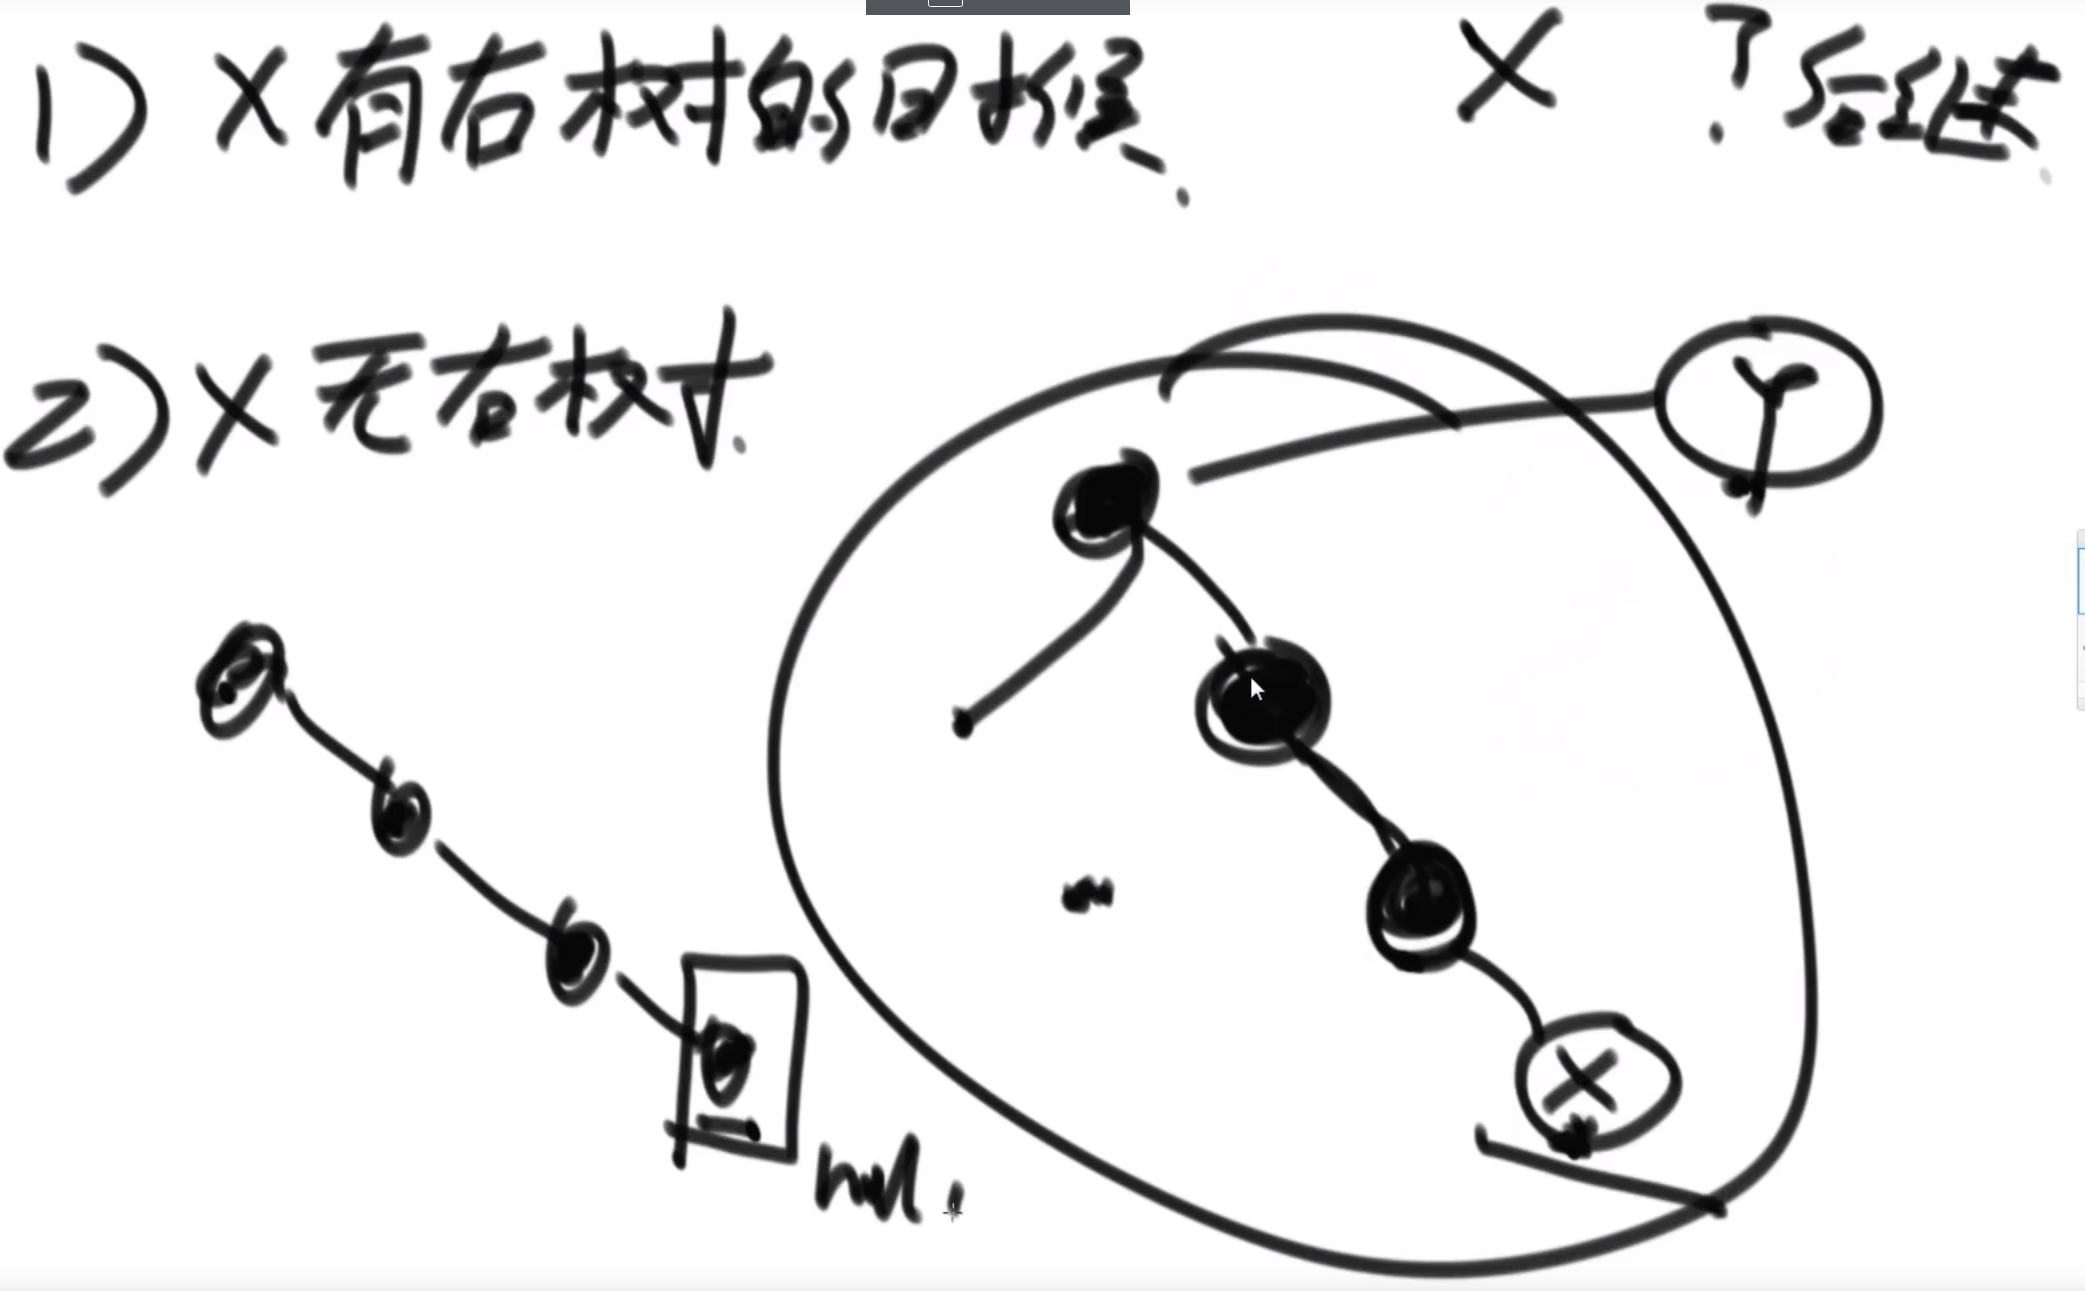 1) X 有右树的时候、.
X ? 后继.
2) X 无右树.
Y
X
null.